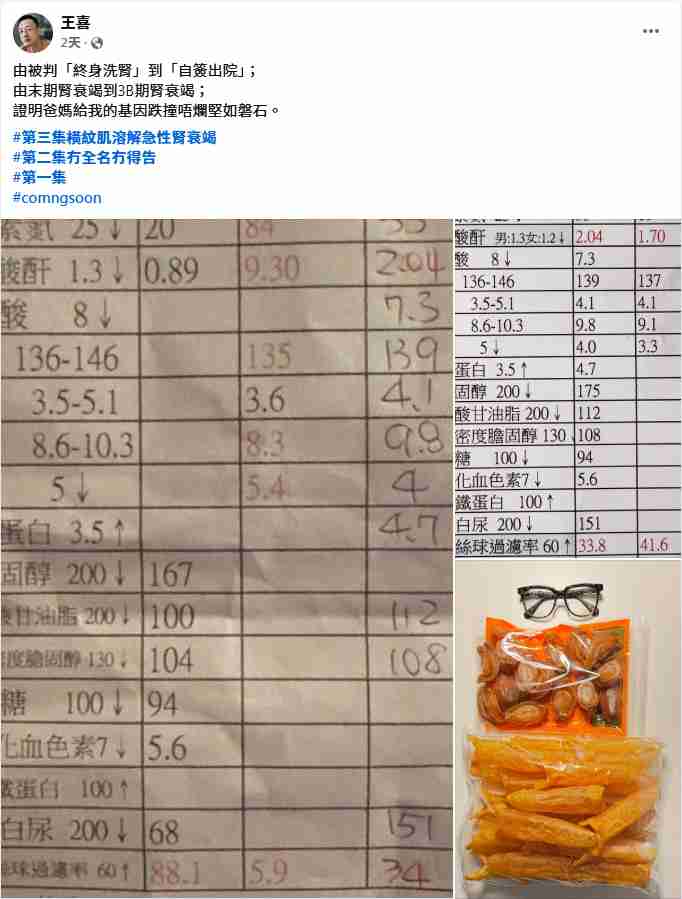 王喜
2天
由被判「終身洗腎」到「自簽出院」；
由末期腎衰竭到3B期腎衰竭；
證明爸媽給我的基因跌撞唔爛堅如磐石。
#第三集橫紋肌溶解急性腎衰竭
#第二集冇全名冇得告
#第一集
#comngsoon
素氮 25↓ 20 84 35
酸酐 1.3↓ 0.89 9.30 2.04
酸 8↓ 7.3
136-146 135 139
3.5-5.1 3.6 4.1
8.6-10.3 8.3 9.8
5↓ 5.4 4
蛋白 3.5↑ 4.7
固醇 200↓ 167
酸甘油脂 200↓ 100 112
密度膽固醇 130↓ 104 108
糖 100↓ 94
化血色素7↓ 5.6
鐵蛋白 100↑
白尿 200↓ 68 151
絲球過濾率 60↑ 88.1 5.9 34
酸酐 男:1.3女:1.2↓ 2.04 1.70
酸 8↓ 7.3
136-146 139 137
3.5-5.1 4.1 4.1
8.6-10.3 9.8 9.1
5↓ 4.0 3.3
蛋白 3.5↑ 4.7
固醇 200↓ 175
酸甘油脂 200↓ 112
密度膽固醇 130↓ 108
糖 100↓ 94
化血色素7↓ 5.6
鐵蛋白 100↑
白尿 200↓ 151
絲球過濾率 60↑ 33.8 41.6